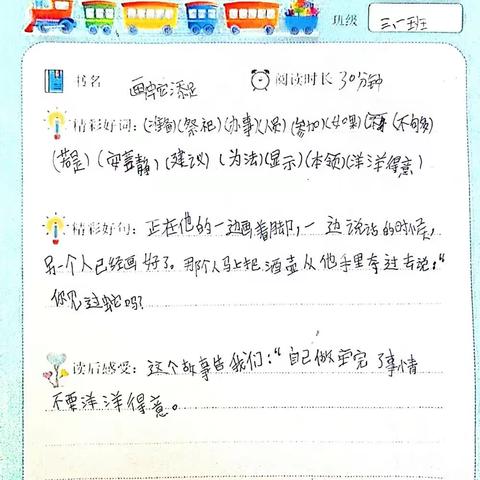 班级 三、一班
书名 画蛇添足 阅读时长 30分钟
精彩好词：(准备)(祭祀)(办事)(人员)(参加)(如果)(不够多)
(若是)(安静)(建议)(办法)(显示)(本领)(洋洋得意)
精彩好句：正在他的一边画着脚，一边说话的时候，
另一个人已经画好了。那个人马上把酒壶从他手里夺过去说：“
你见过蛇吗？
读后感受：这个故事告我们：“自己做完了事情
不要洋洋得意。